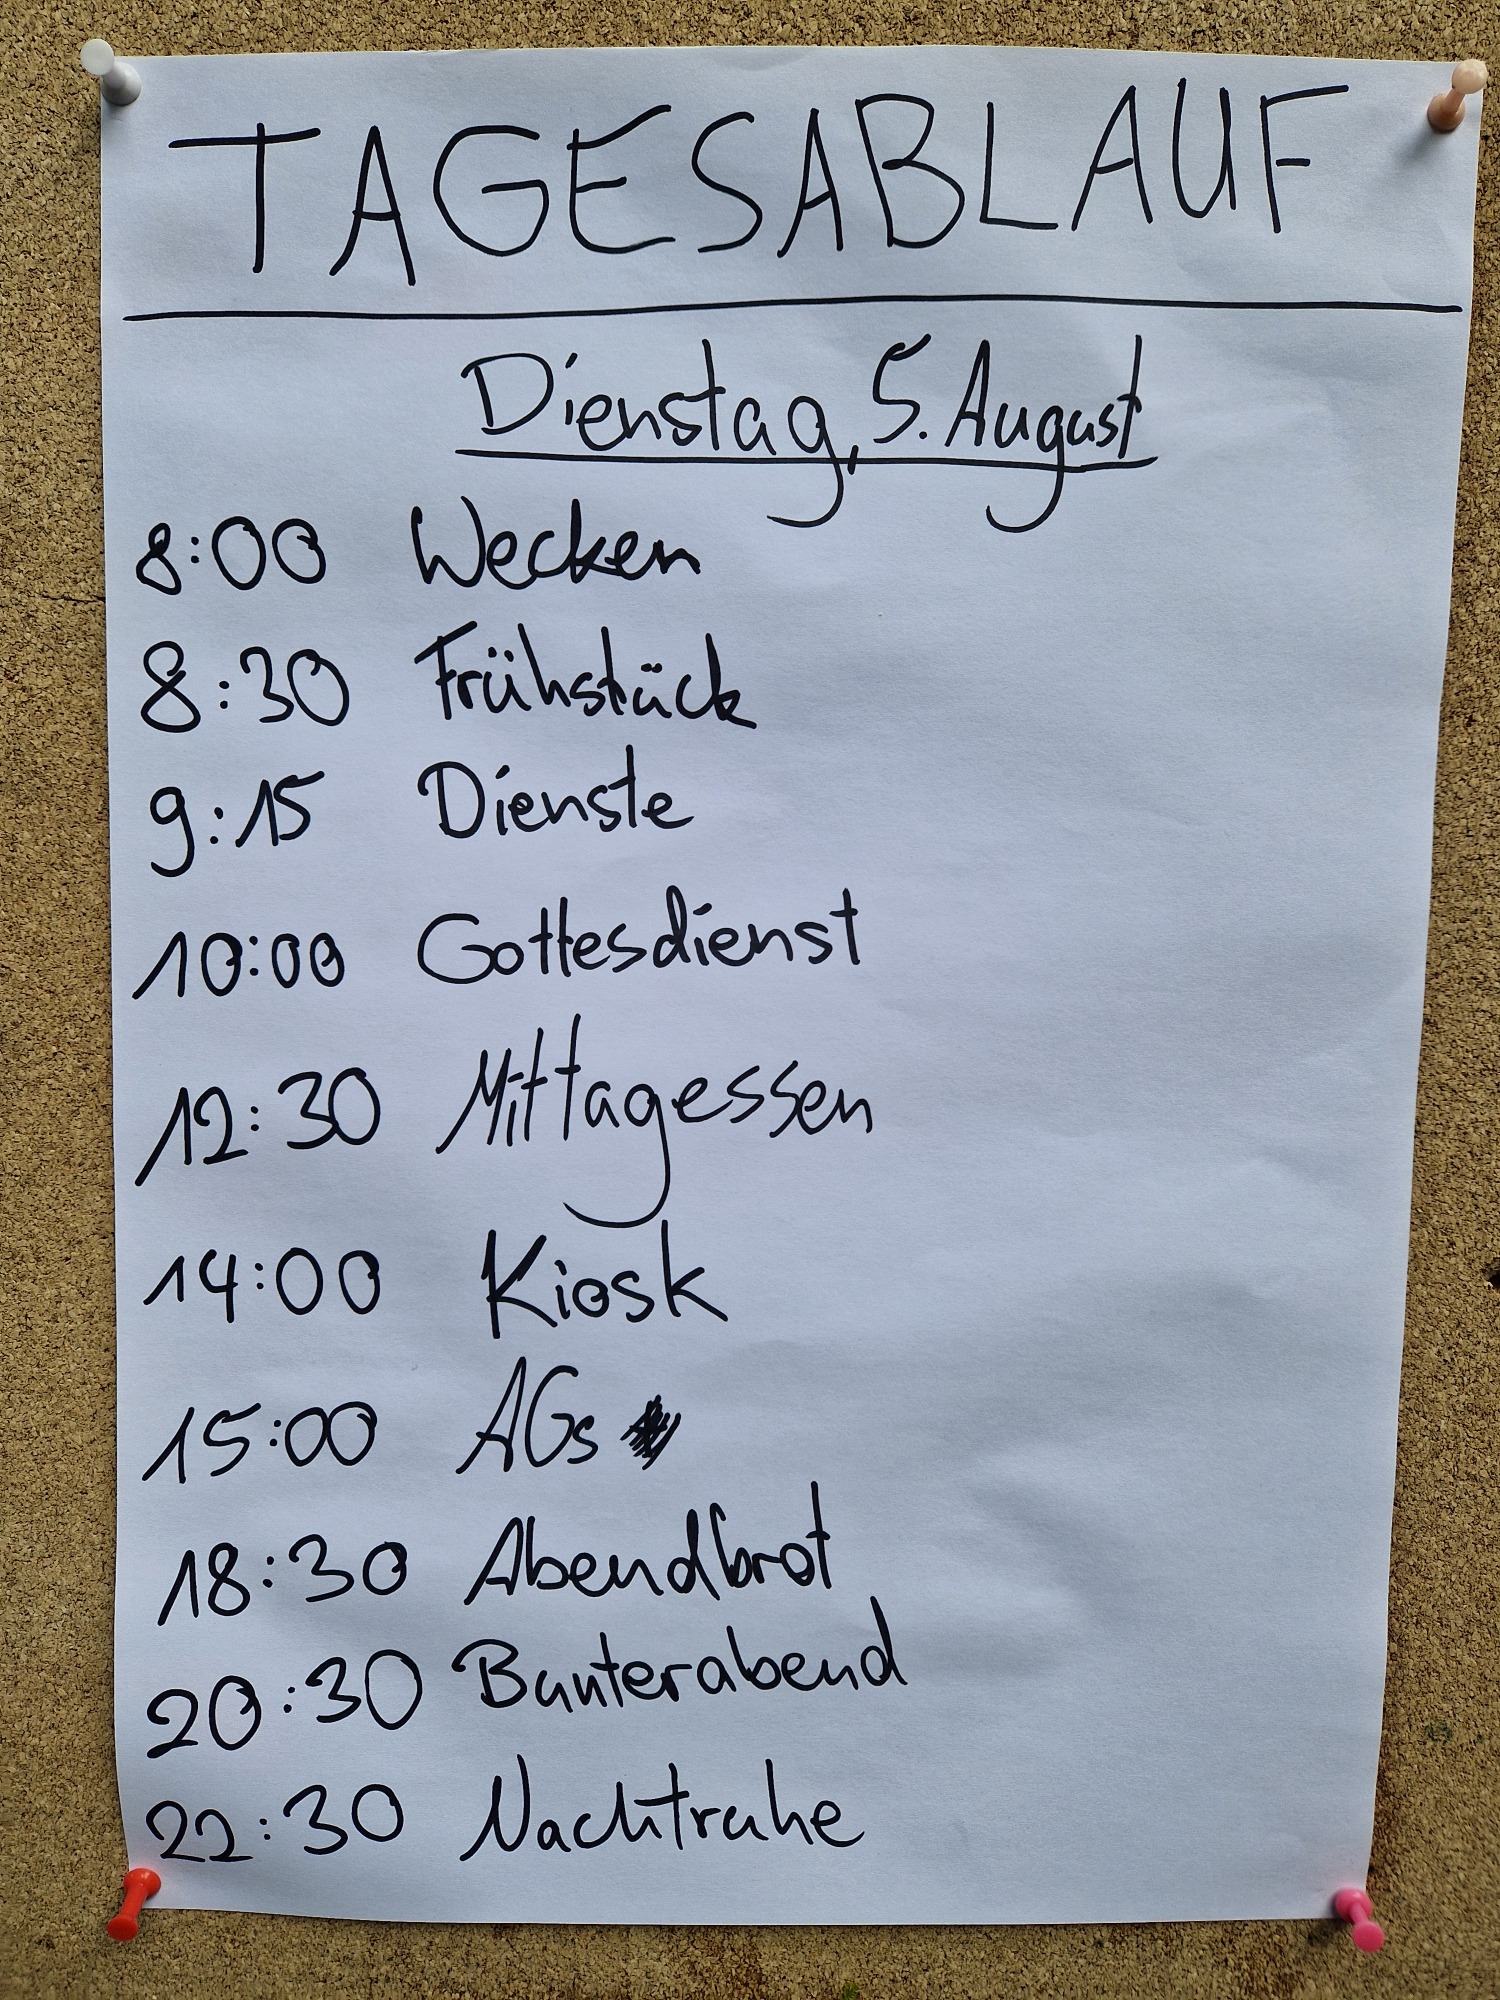 TAGESABLAUF
Dienstag, 5. August
8:00 Wecken
8:30 Frühstück
9:15 Dienste
10:00 Gottesdienst
12:30 Mittagessen
14:00 Kiosk
15:00 AGs
18:30 Abendbrot
20:30 Bunterabend
22:30 Nachtruhe